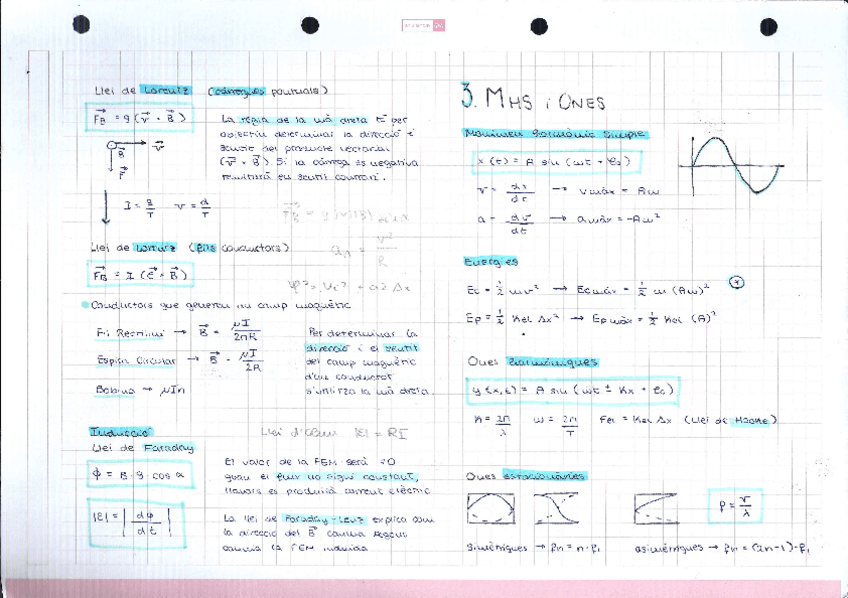 Llei de Lorentz (càrregues puntuals)
F_B = q (v × B)
La regla de la mà dreta té per
objectiu determinar la direcció i
sentit del producte vectorial
(v × B). Si la càrrega és negativa
tindrà en sentit contrari.
v
B
F
I = q/T v = d/T
F_B = q |v||B| sin α
a_n = v²/R
Llei de Lorentz (fils conductors)
F_B = I (ℓ × B)
Conductors que generen un camp magnètic
Fil Rectilini → B = μI/2πR
Espira Circular → B = μI/2R
Bobina → μIn
Per determinar la
direcció i el sentit
del camp magnètic
d'un conductor
s'utilitza la mà dreta.
Inducció
Llei de Faraday
Llei d'Ohm |ε| = RI
φ = B · S · cos α
|ε| = |dφ/dt|
El valor de la FEM serà ≠0
quan el flux no sigui constant,
llavors es produirà corrent elèctric
La llei de Faraday-Lenz explica com
la direcció del B canvia segons
canvia la FEM induïda
3. MHS i ONES
Moviment Harmònic Simple
x (t) = A sin (ωt + φ₀)
v = dx/dt → v màx = Aω
a = dv/dt → a màx = -Aω²
Energies
Ec = ½ mv² → Ec màx = ½ m (Aω)²
Ep = ½ Kel Δx² → Ep màx = ½ Kel (A)²
Ones harmòniques
y (x,t) = A sin (ωt ± Kx + φ₀)
K = 2π/λ ω = 2π/T Fel = Kel Δx (Llei de Hooke)
Ones estacionàries
f = v/λ
simètriques → fn = n · f₁
asimètriques → fn = (2n-1) · f₁